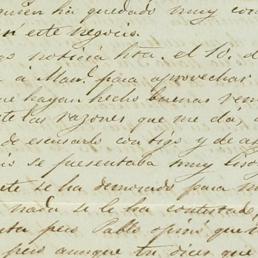 quien ha quedado muy con
en este negocio.
noticia hta. el 10. d
a Man.l para aprovechar
hayan hecho buenas ven
las razones que me da, a
de escusarlo contigo y de a
se presentaba muy
se ha demorado para m
nada se le ha contestado,
pero Pablo opinó que
pero aunque tu dices que